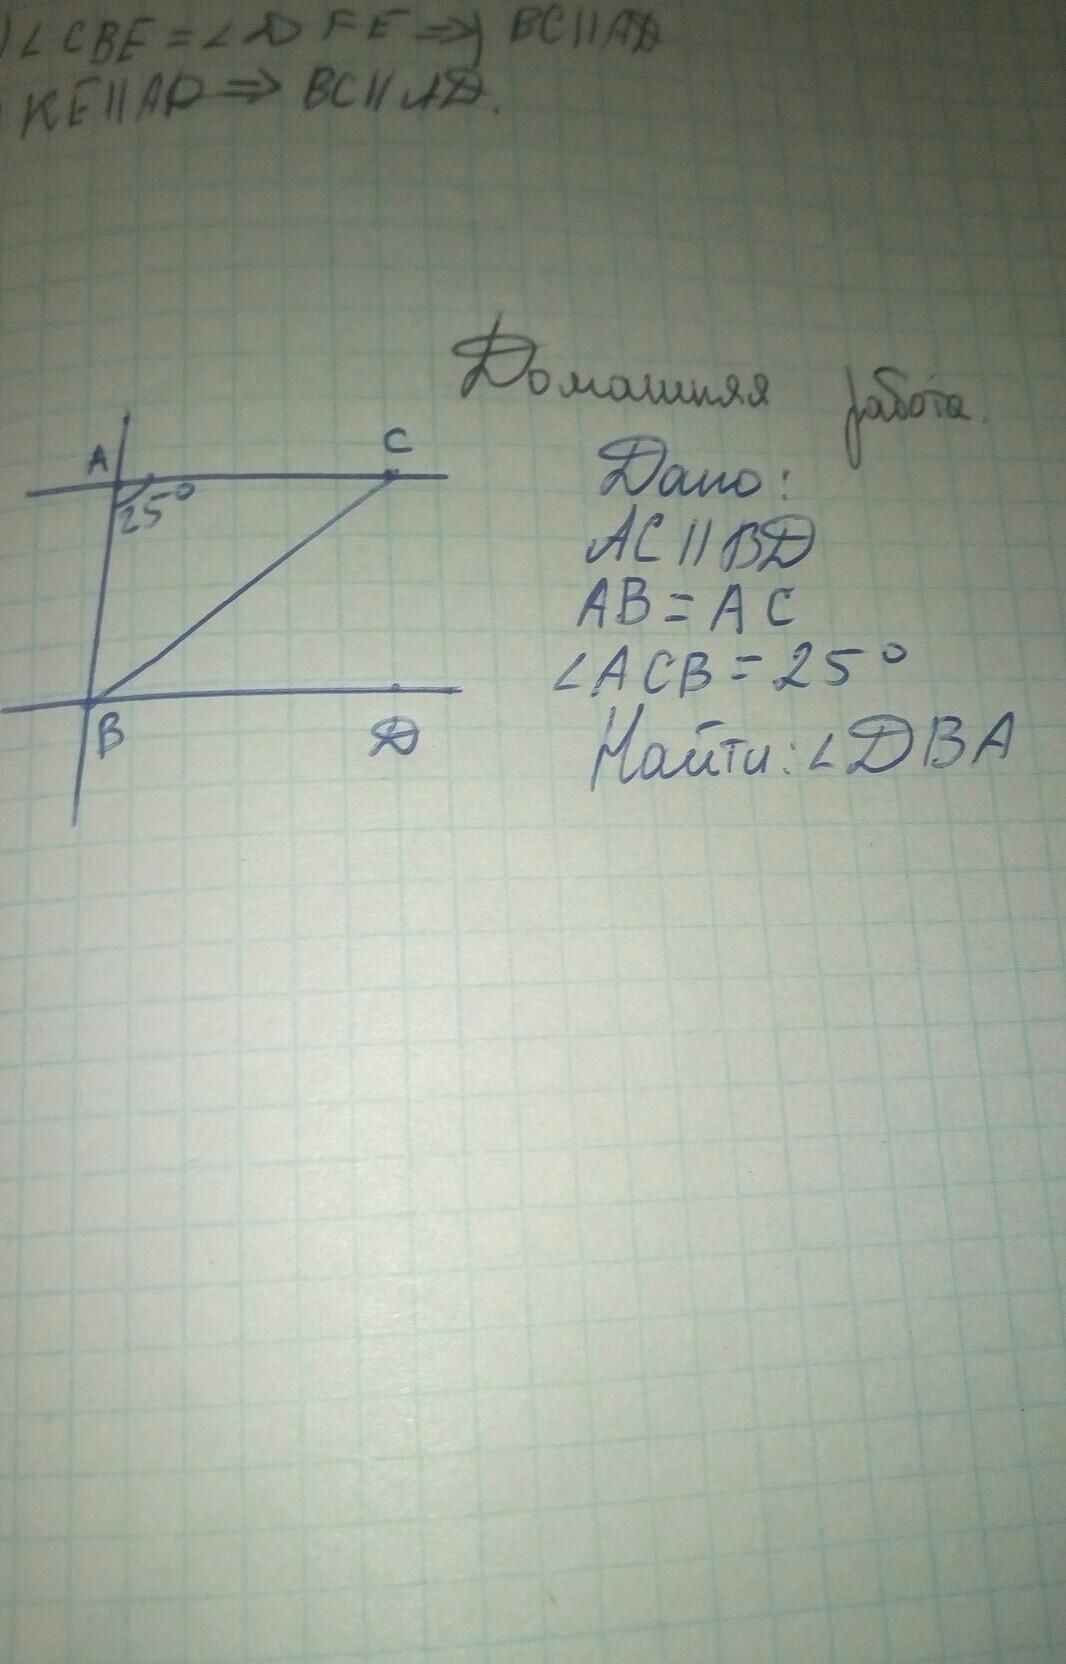 ) ∠CBE = ∠DFE => BC || AD
KE || AD => BC || AD.
Домашняя работа.
A
C
25°
B
D
Дано:
AC || BD
AB = AC
∠ACB = 25°
Найти: ∠DBA